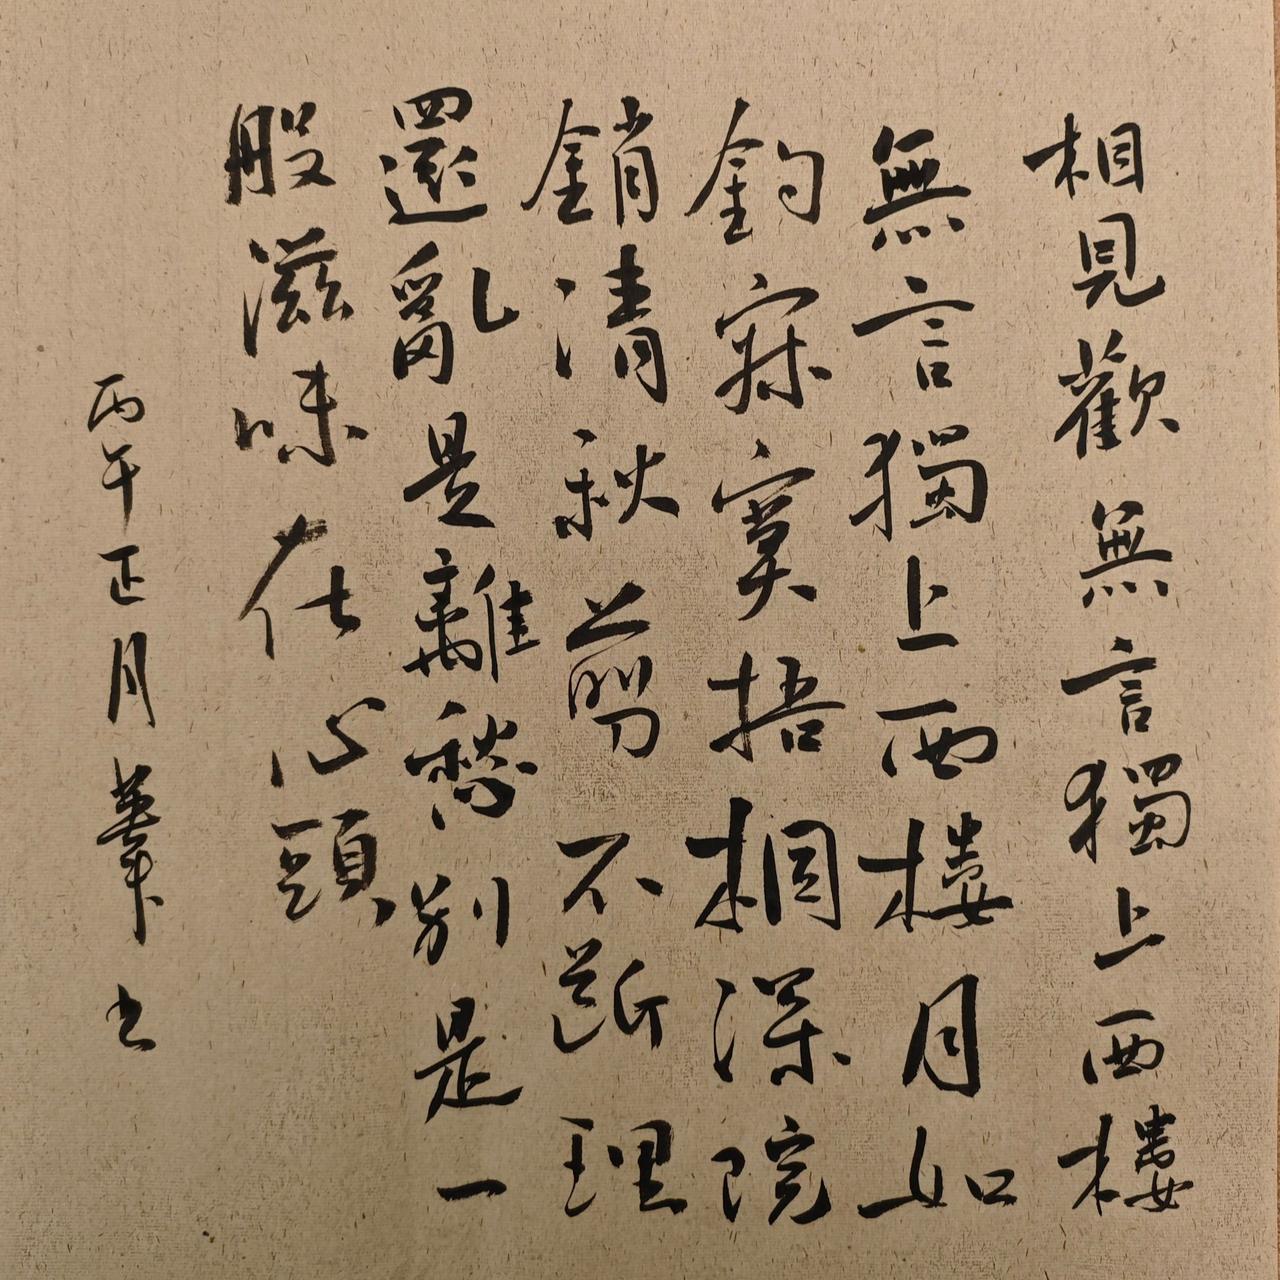 相見歡無言獨上西樓
無言獨上西樓月如
鈎寂寞梧桐深院
鎖清秋剪不斷理
還亂是離愁別是一
般滋味在心頭
丙午正月书